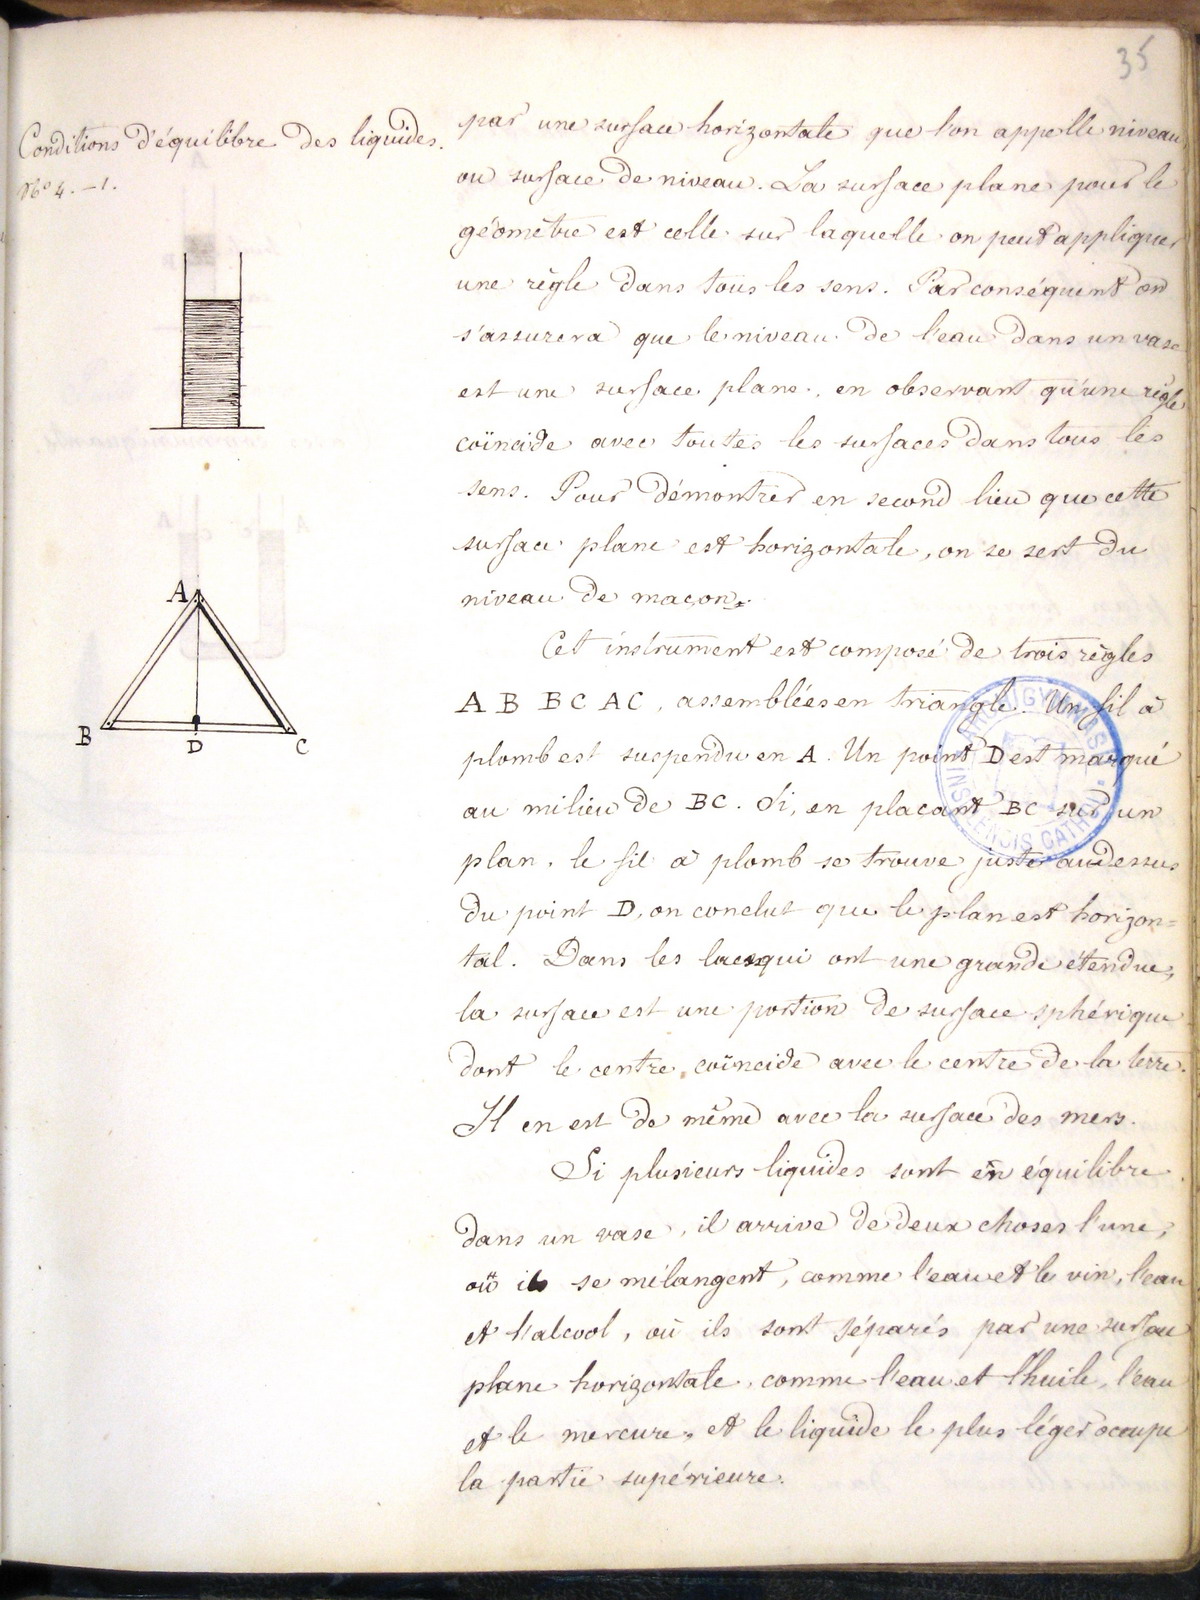 35
Conditions d'équilibre des liquides.
N° 4. - 1.
par une surface horizontale que l'on appelle niveau
ou surface de niveau. La surface plane pour le
géomètre est celle sur laquelle on peut appliquer
une règle dans tous les sens. Par conséquent on
s'assurera que le niveau de l'eau dans un vase
est une surface plane, en observant qu'une règle
coïncide avec toutes les surfaces dans tous les
sens. Pour démontrer en second lieu que cette
surface plane est horizontale, on se sert du
niveau de maçon.
Cet instrument est composé de trois règles
A B B C A C, assemblées en triangle. Un fil à
plomb est suspendu en A. Un point D est marqué
au milieu de BC. Si, en plaçant BC sur un
plan, le fil à plomb se trouve juste au dessus
du point D, on conclut que le plan est horizon=
tal. Dans les lacs qui ont une grande étendue,
la surface est une portion de surface sphérique
dont le centre coïncide avec le centre de la terre.
Il en est de même avec la surface des mers.
Si plusieurs liquides sont en équilibre
dans un vase, il arrive de deux choses l'une,
où ils se mélangent, comme l'eau et le vin, l'eau
et l'alcool, où ils sont séparés par une surface
plane horizontale, comme l'eau et l'huile, l'eau
et le mercure, et le liquide le plus léger occupe
la partie supérieure.
A
B
D
C